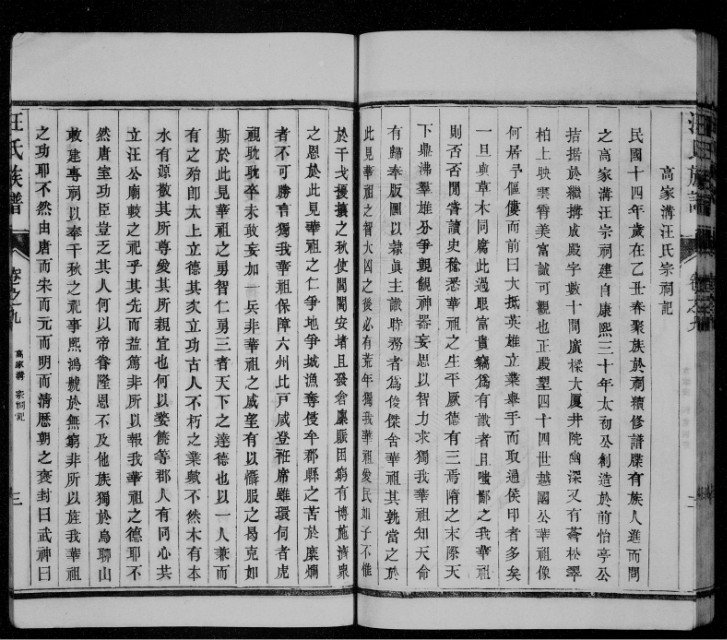 高家溝汪氏宗祠記
民國十四年歲在乙丑春聚族於祠續修譜牒有族人進而問
之高家溝汪宗祠建自康熙三十年太初公創造於前怡亭公
拮据於繼搆成殿宇數十間廣樑大厦井院幽深又有蒼松翠
柏上映雲霄美富誠可觀也正殿塑四十四世越國公華祖像
何居予傴僂而前曰大抵英雄立業唾手而取通侯印者多矣
一旦與草木同腐此過眼富貴竊為有識者且嗤鄙之我華祖
則否否閒嘗讀史稔悉華祖之生平厥德有三焉隋之末際天
下鼎沸羣雄分爭覬覦神器妄思以智力求獨我華祖知天命
有歸奉版圖以隸貞主識時務者為俊傑舍華祖其孰當之於
此見華祖之智大凶之後必有荒年獨我華祖愛民如子不惟
於干戈擾攘之秋使閭閻安堵且發倉廩賑困窮有博施濟衆
之恩於此見華祖之仁爭地爭城漁奪侵牟郡縣之苦於糜爛
者不可勝言獨我華祖保障六州比戶咸登袵席雖環伺者虎
視耽耽卒未敢妄加一兵非華祖之威望有以懾服之曷克如
斯於此見華祖之勇智仁勇三者天下之達德也以一人兼而
有之殆卽太上立德其次立功古人不朽之業歟不然木有本
水有源報其所尊愛其所親宜也何以婺饒等郡人有同心共
立汪公廟較之祀乎其先而益篤非所以報我華祖之德耶不
然唐室功臣豈乏其人何以帝眷隆恩不及他族獨於烏聊山
敕建專祠以奉千秋之祀事熙鴻號於無窮非所以旌我華祖
之功耶不然由唐而宋而元而明而清歷朝之褒封曰武神曰
汪氏族譜
卷之九
高家溝
宗祠記
三